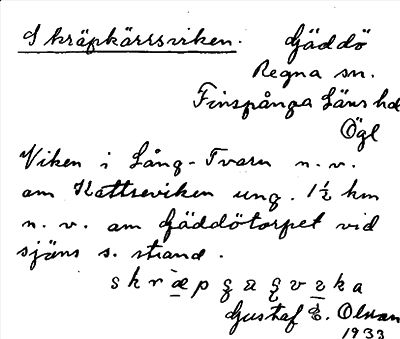 Skräpkärssviken. Gäddö
Regna sn.
Finspånga Läns hd
Ögl
Viken i Lång-Tvarn n.v.
om Kattseviken ung. 1½ km
n.v. om Gäddötorpet vid
sjöns s. strand.
Gustaf
1933